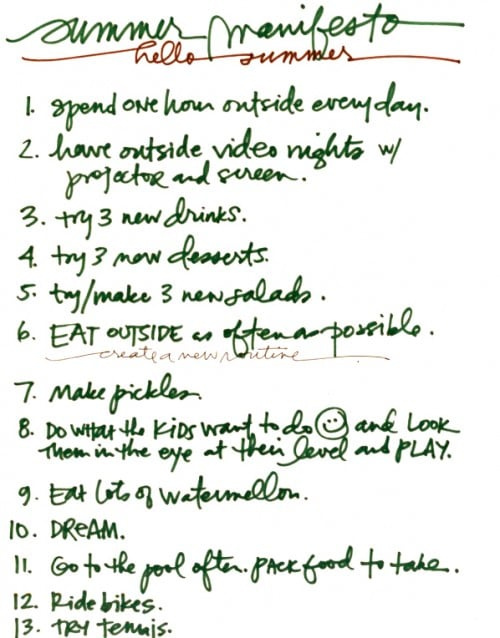 summer manifesto
hello summer
1. spend one hour outside every day.
2. have outside video nights w/
projector and screen.
3. try 3 new drinks.
4. try 3 new desserts.
5. try/make 3 new salads.
6. EAT OUTSIDE as often as possible.
create a new routine
7. Make pickles.
8. DO WHAT the KiDS want to do ☺ and LOOK
them in the eye at their level and PLAY.
9. Eat lots of watermellon.
10. DREAM.
11. Go to the pool often. PACK food to take.
12. Ride bikes.
13. TRY tennis.